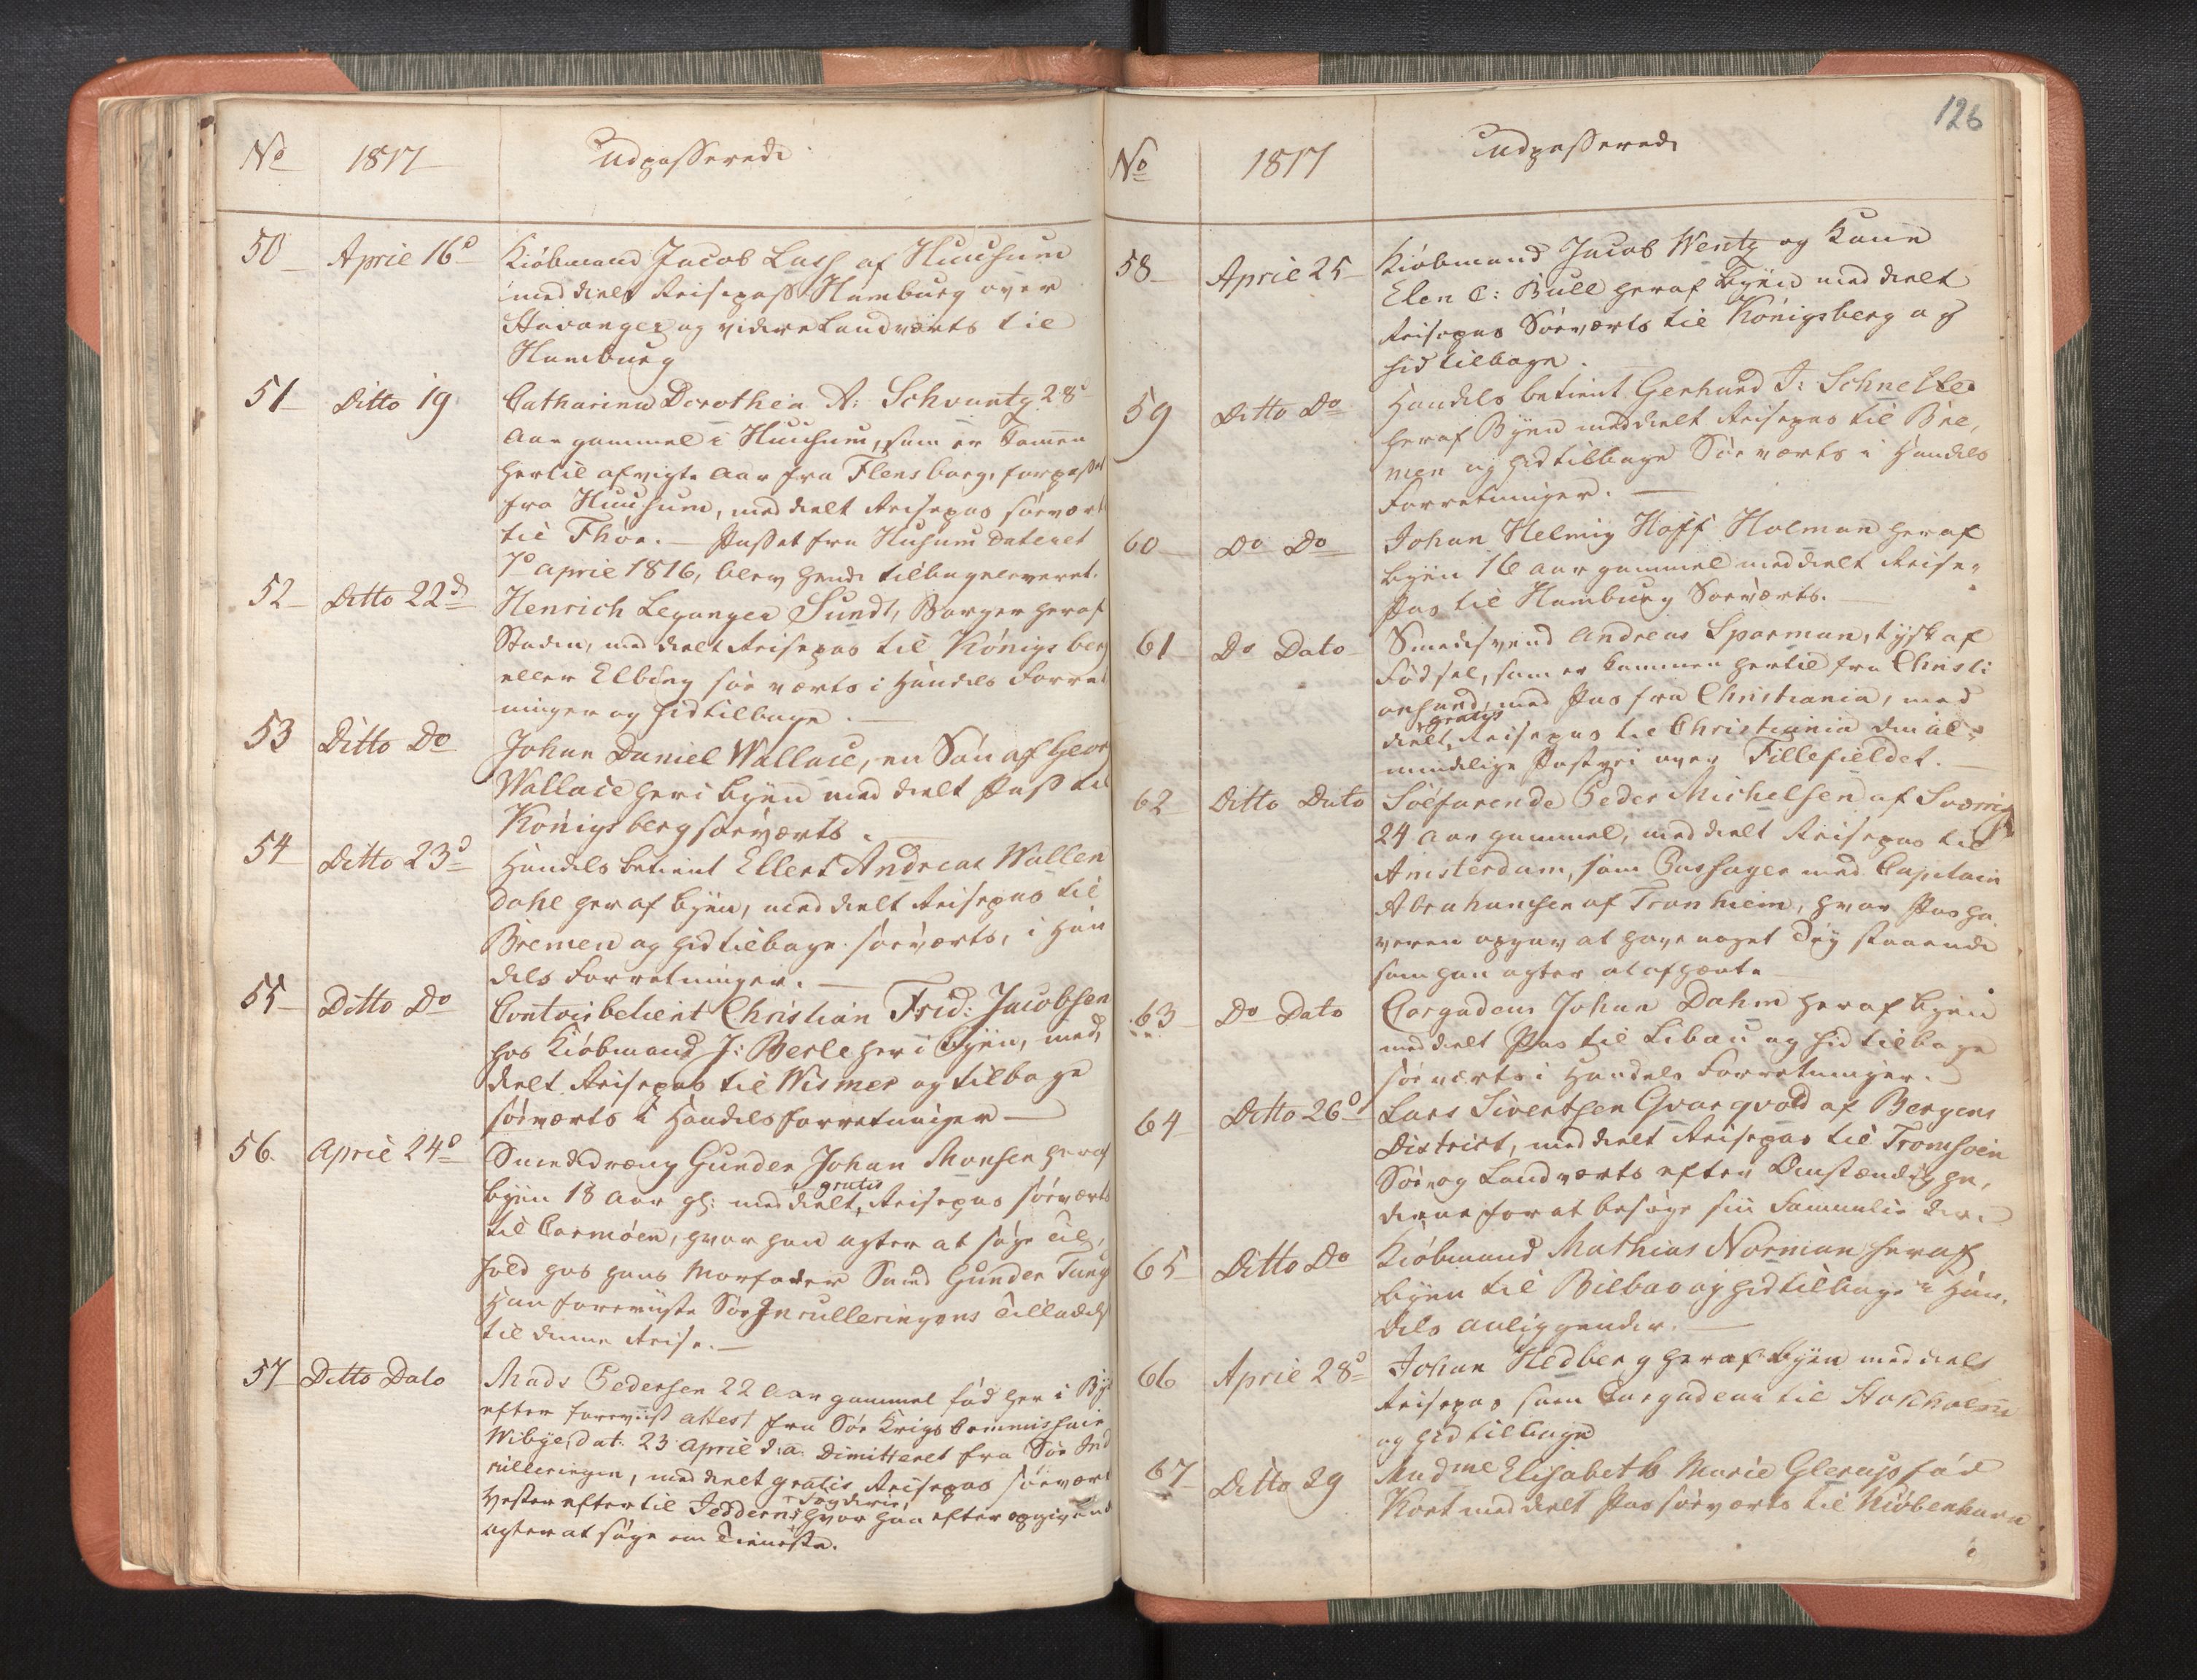 No 1817 Udpasserede
50 April 16d Kiøbmand Jacob Lass af Huusum
meddeelt Reisepass Hamburg over
Stavanger og videre Landværts til
Hamburg
51 Ditto 19 Catharina Dorothea A: Schvantz 28
Aar gammel i Huusum, som er kommen
hertil afvigte Aar fra Flensborg, forpasset
fra Huusum, meddeelt Reisepas søeværts
til Fhöe. Passet fra Husum dateret
7d april 1816, blev hende tilbageleveret.
52 Ditto 22d Henrich Leganger Sundt, Borger heraf
Staden, meddeelt Reisepas til Königsberg
eller Elbing søeværts i Handels Forret
ninger og hid tilbage.
53 Ditto Do Johan Daniel Wallace, en Søn af Georg
Wallace her i byen meddeelt Pass til
Königsberg søeværts.
54 Ditto 23d Handels betient Ellert Andreas Wallen
dahl her af byen, meddeelt Reisepas til
Bremen og hid tilbage søeværts, i Han
dels Forretninger.
55 Ditto Do Contoirbetient Christian Frid: Jacobsen
hos Kiøbmand J: Berle her i Byen, med
deelt Reisepas til Wismer og tilbage
søeværts i Handelsforretninger
56. April 24d Smededræng Gunder Johan Monsen heraf
byen 18 Aar gl: meddeelt gratis Reisepas søeværts
til Carmöen, hvor han agter at søge Til,
hold hos hans Morfader Smed Gunder Tung
Han foreviiste Søe Inrulleringens Tilladelse
til denne Reise.
57 Ditto Dato Mads Pedersen 22 Aar gammel fød her i Bye
efter foreviist Attest fra Søe Krigs Commissair
Wibye, dat. 23 April d. a. Dimitteret fra Søe Ind
rulleringen, meddeelt gratis Reisepas søevært
Vester efter til Jedderns Fogderie, hvor han efter opgivende
agter at søge om Tieneste.
126
No 1817 Udpasserede
58 April 25 Kiøbmand Jacob Wentz og Kone
Elen C: Bull heraf Byen meddeelt
Reisepas Søeværts til Königsberg og
hid tilbage.
59 Ditto Do Handels betient Gerhard J: Schnelle
heraf Byen meddeelt Reisepas til Bre,
men og hid tilbage Søeværts i Handels
Forretninger.
60 Do Do Johan Helmig Hoff Holman heraf
byen 16 Aar gammel meddeelt Reise,
Pas til Hamburg Søeværts.
61 Do Dato Smedesvend Andreas Sparman, tydsk af
Fødsel, som er kommen hertil fra Christi
ansand, med Pas fra Christiania, med
deelt gratis Reisepas til Christiania den al,
mindelige Postvei over Fillefieldet.
62 Ditto Dato Søefarende Peder Michelsen af Sverrig
24 Aar gammel, meddeelt Reisepas til
Amsterdam, som Passager med Capitain
Abrahamsen af Tronhiem, hvor Pasha
veren opgav at have noget Tøy staaende
som han agter at afhente
63 Do Dato Cargadeur Johan Dahm heraf byen
meddeelt Pas til Libau og hid tilbage
søeværts i Handels Forretninger.
64 Ditto 26d Lars Sivertsen Gvargvold af Bergens
District, meddeelt Reisepas til Tromsøen
Søe og Landværts efter Omstændighe,
derne for at besøge sin Famielie der.
65 Ditto Do Kiøbmand Mathias Norman heraf
byen til Bilbao og hid tilbage i Han,
dels anliggender.
66 April 28d Johan Hedberg heraf byen meddeelt
Reisepas som Cargadeur til Stokholm
og hid tilbage
67 Ditto 29 Madme Elisabeth Marie Glerup fød
Kort meddeelt Pas søeværts til Kiøbenhavn